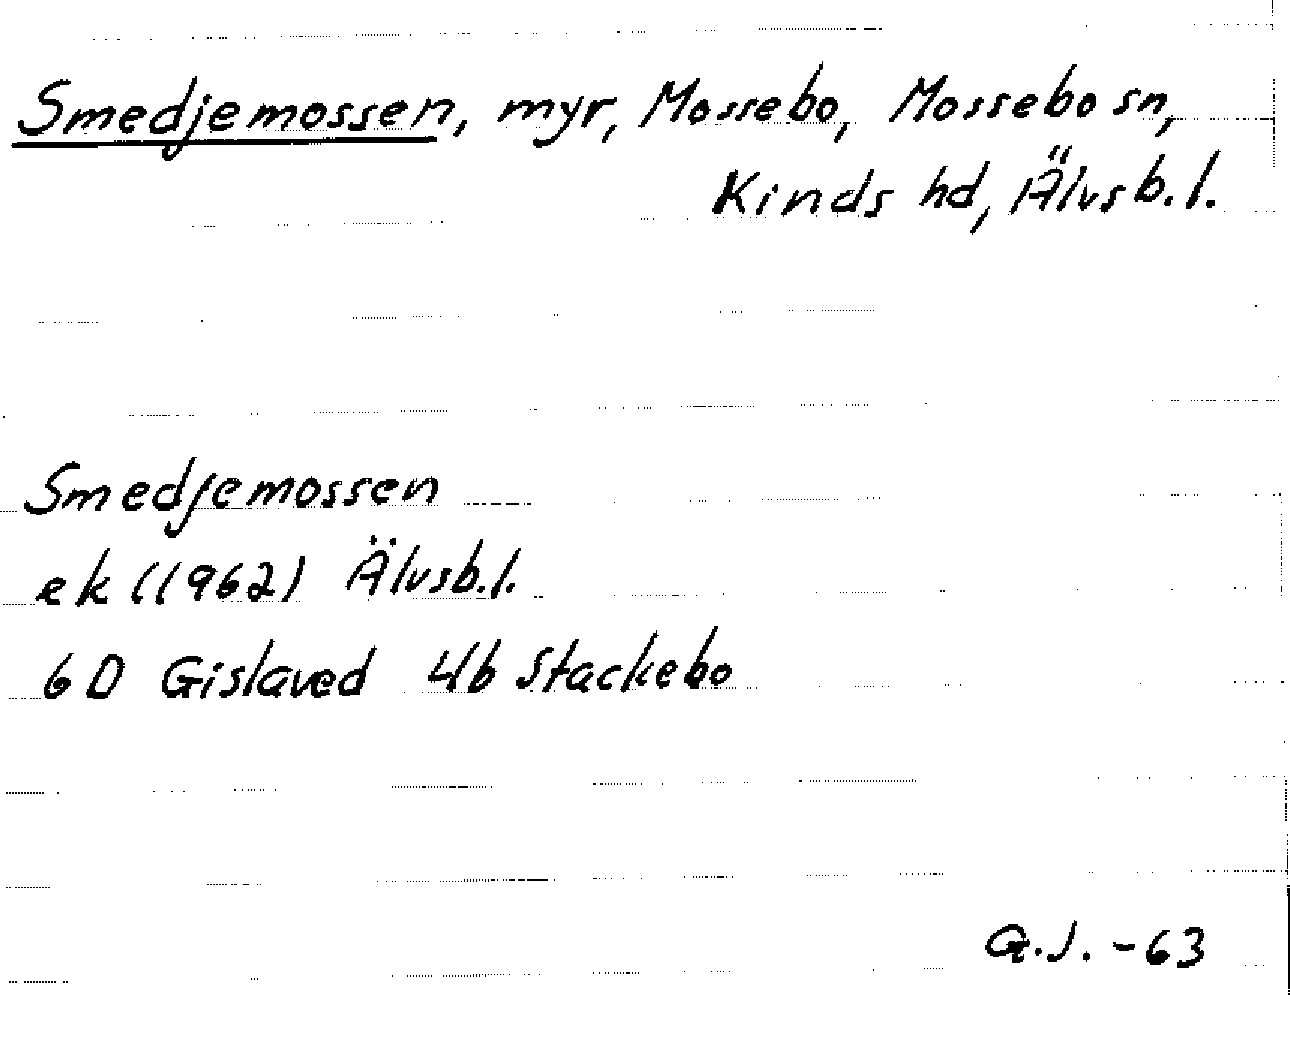 Smedjemossen, myr, Mossebo, Mossebo sn,
Kinds hd, Älvsb. l.
Smedjemossen
ek (1962) Älvsb. l.
6 D Gislaved 4b Stackebo
G.J. -63